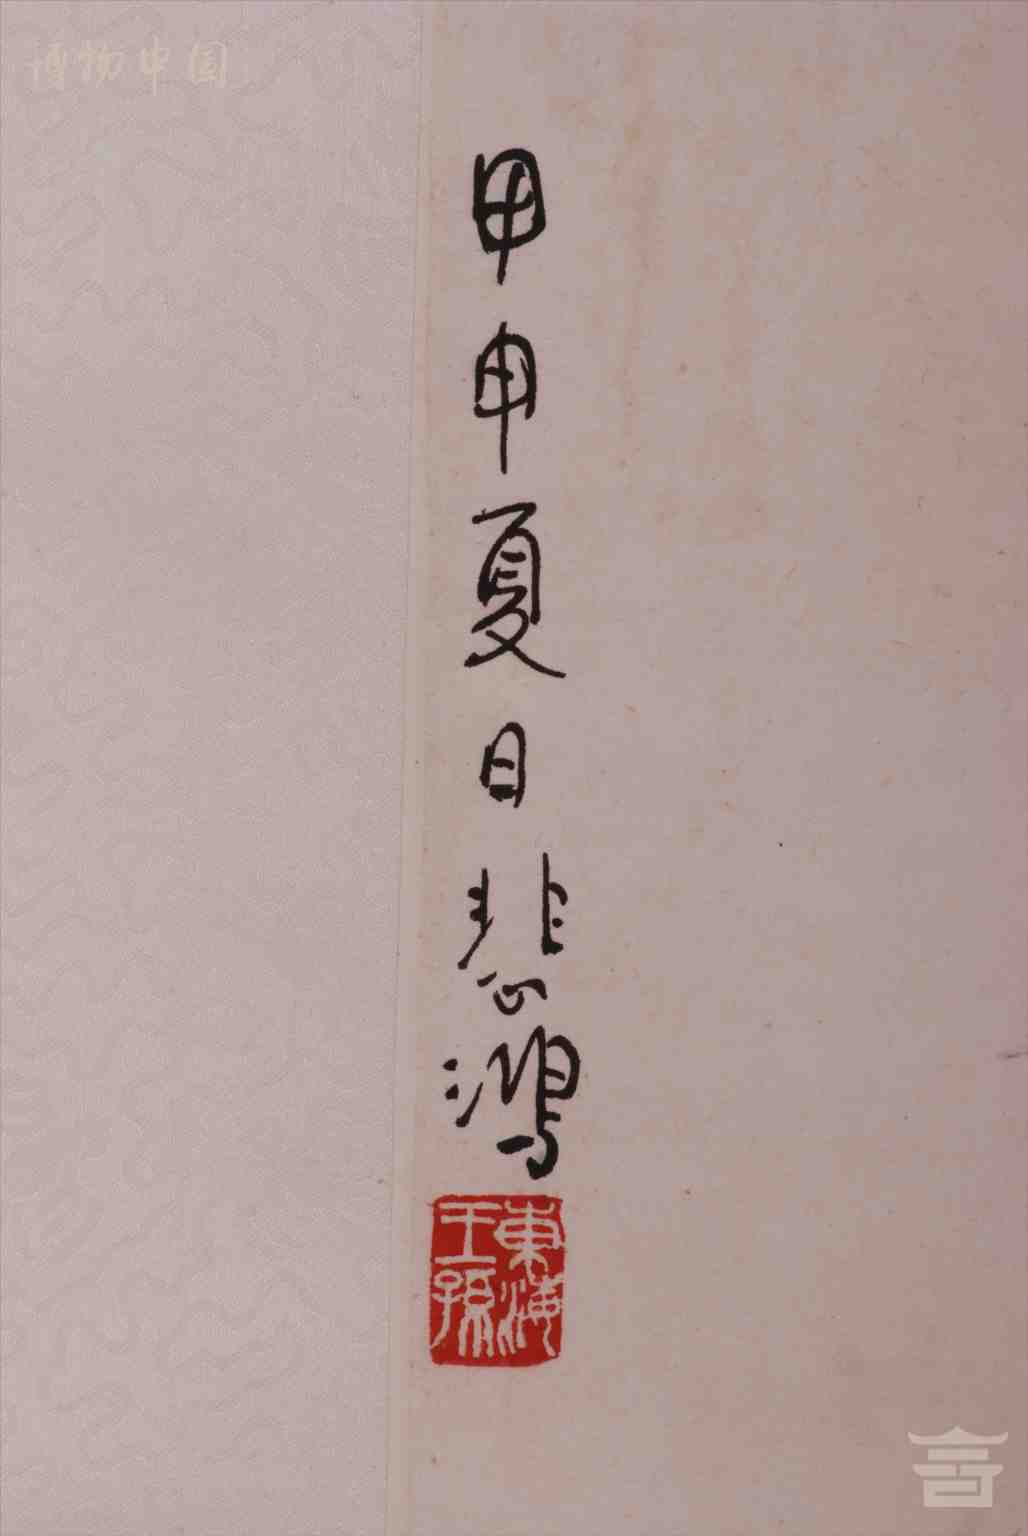 博物中国
甲申夏日悲鴻
東海
王孫